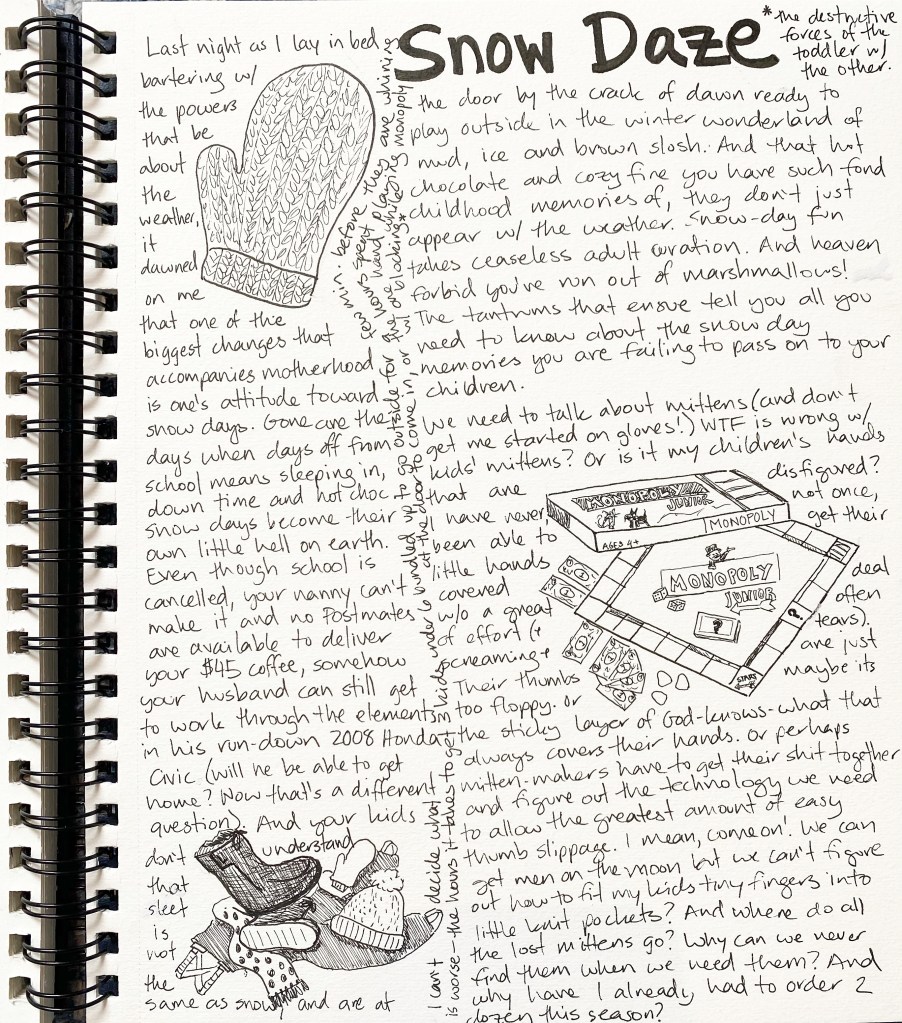 Snow Daze
Last night as I lay in bed
bartering w/
the powers
that be
about
the
weather,
it
dawned
on me
that one of the
biggest changes that
accompanies motherhood
is one's attitude toward
snow days. Gone are the
days when days off from
school means sleeping in,
down time and hot choc.
Snow days become their
own little hell on earth.
Even though school is
cancelled, your nanny can't
make it and no Postmates
are available to deliver
your $45 coffee, somehow
your husband can still get
to work through the elements
in his run-down 2008 Honda
Civic (will he be able to get
home? Now that's a different
question). And your kids
don't understand
that
sleet
is
not
the
same as snow, and are at
the door by the crack of dawn ready to
play outside in the winter wonderland of
mud, ice and brown slosh. And that hot
chocolate and cozy fire you have such fond
childhood memories of, they don't just
appear w/ the weather. Snow-day fun
takes ceaseless adult curation. And heaven
forbid you've run out of marshmallows!
The tantrums that ensue tell you all you
need to know about the snow day
memories you are failing to pass on to your
children.
We need to talk about mittens (and don't
get me started on gloves!) WTF is wrong w/
kids' mittens? Or is it my children's hands
that are disfigured?
I have never, not once,
been able to get their
little hands deal
covered often
w/o a great tears).
of effort (+ are just
screaming + maybe its
Their thumbs
too floppy. or
the sticky layer of God-knows-what that
always covers their hands. Or perhaps
mitten-makers have to get their shit together
and figure out the technology we need
to allow the greatest amount of easy
thumb slippage. I mean, come on! We can
get men on the moon but we can't figure
out how to fit my kids tiny fingers into
little knit pockets? And where do all
the lost mittens go? Why can we never
find them when we need them? And
why have I already had to order 2
dozen this season?
I can't decide what
is worse - the hours it takes to get
kids under to bundled up to go outside for the
few min. before they are whining
at the door to come in, or the
hours spent playing monopoly
w/ one hand while
blocking*
*the destructive
forces of the
toddler w/
the other.
MONOPOLY
JUNIOR
MONOPOLY
AGES 4+
MONOPOLY
JUNIOR
?
?
START